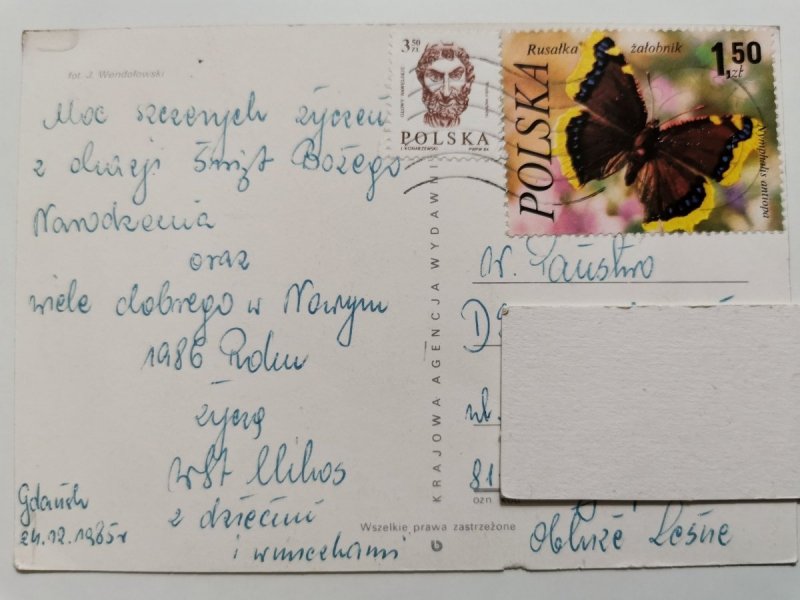 fot. J. Wendołowski
Moc szczerych życzeń
z okazji Świąt Bożego
Narodzenia
oraz
wiele dobrego w Nowym
1986 Roku
życzą
z dziećmi
i wnuczkami
Gdańsk
24.12.1985r
KRAJOWA AGENCJA WYDAWNI
Wszelkie prawa zastrzeżone
3,50 zł
POLSKA
Rusałka żałobnik
1,50 zł
POLSKA
Nymphalis antiopa
W. Państwo
ul.
81
Obłuże Leśne